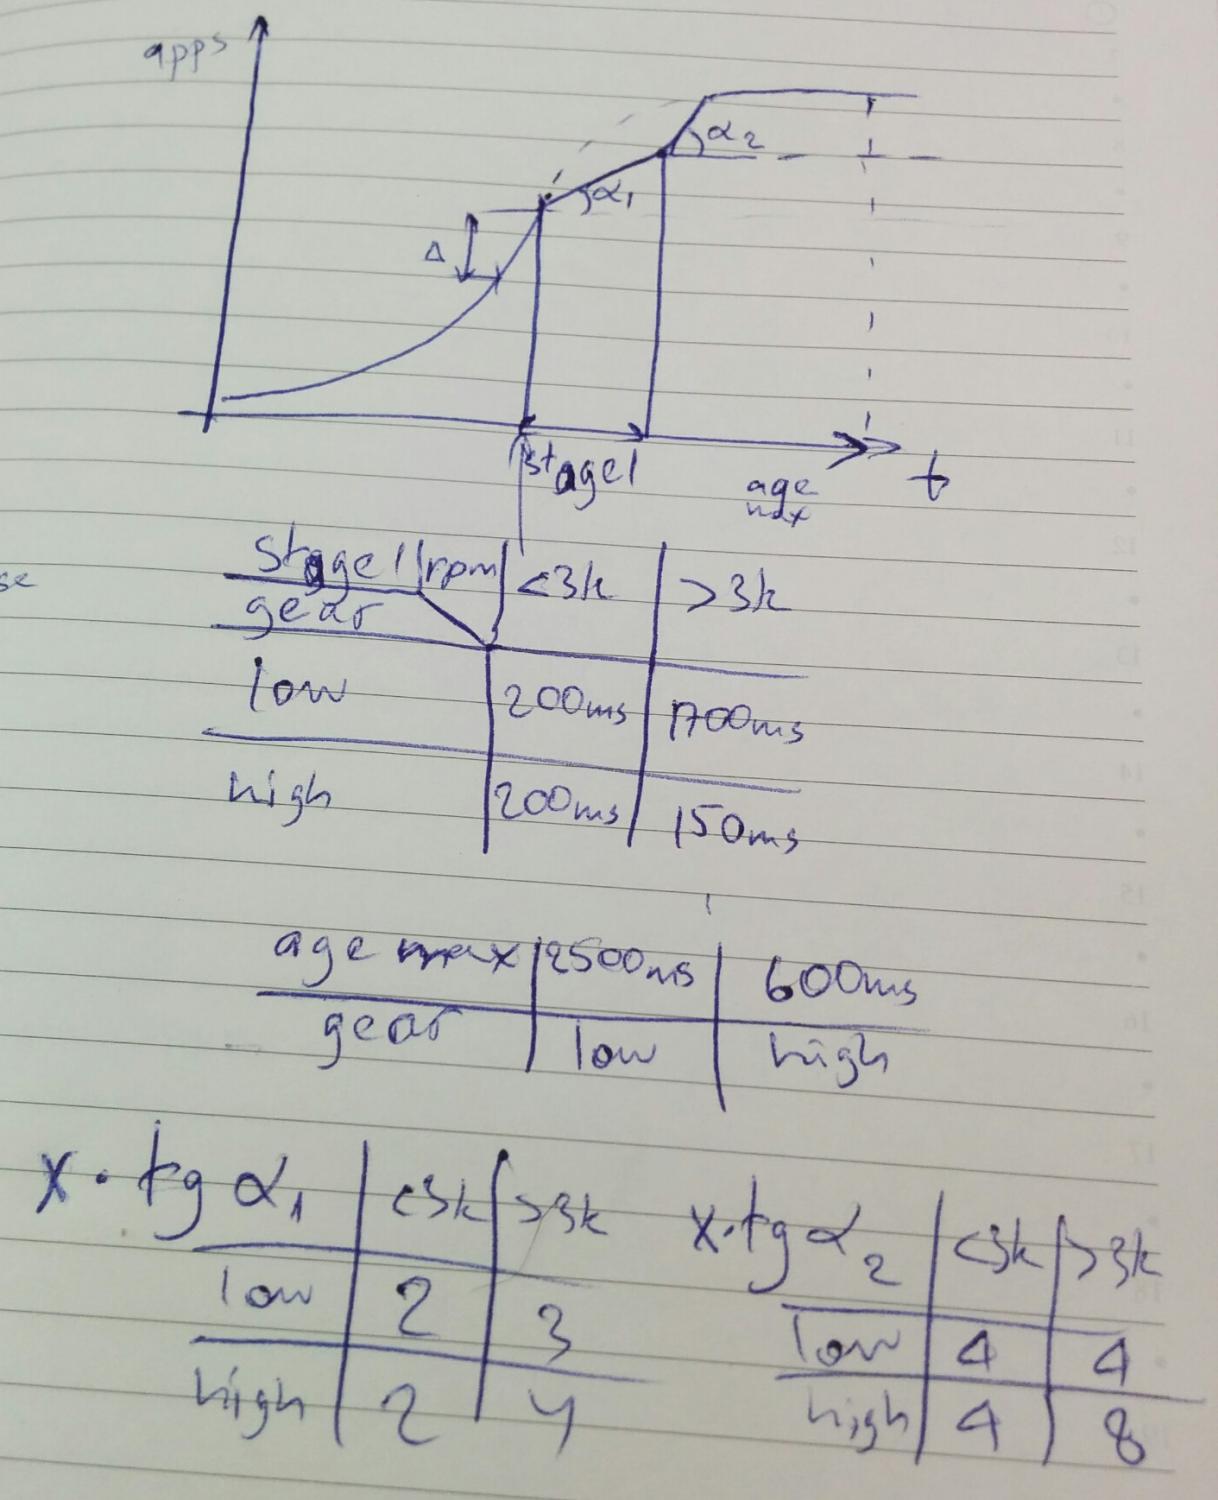 apps
α2
α1
Δ
stage1
age
max
t
se
stage1 rpm <3k >3k
gear
low 200ms 1700ms
high 200ms 150ms
age max 2500ms 600ms
gear low high
x · tg α1 <3k >3k
low 2 3
high 2 4
x · tg α2 <3k >3k
low 4 4
high 4 8